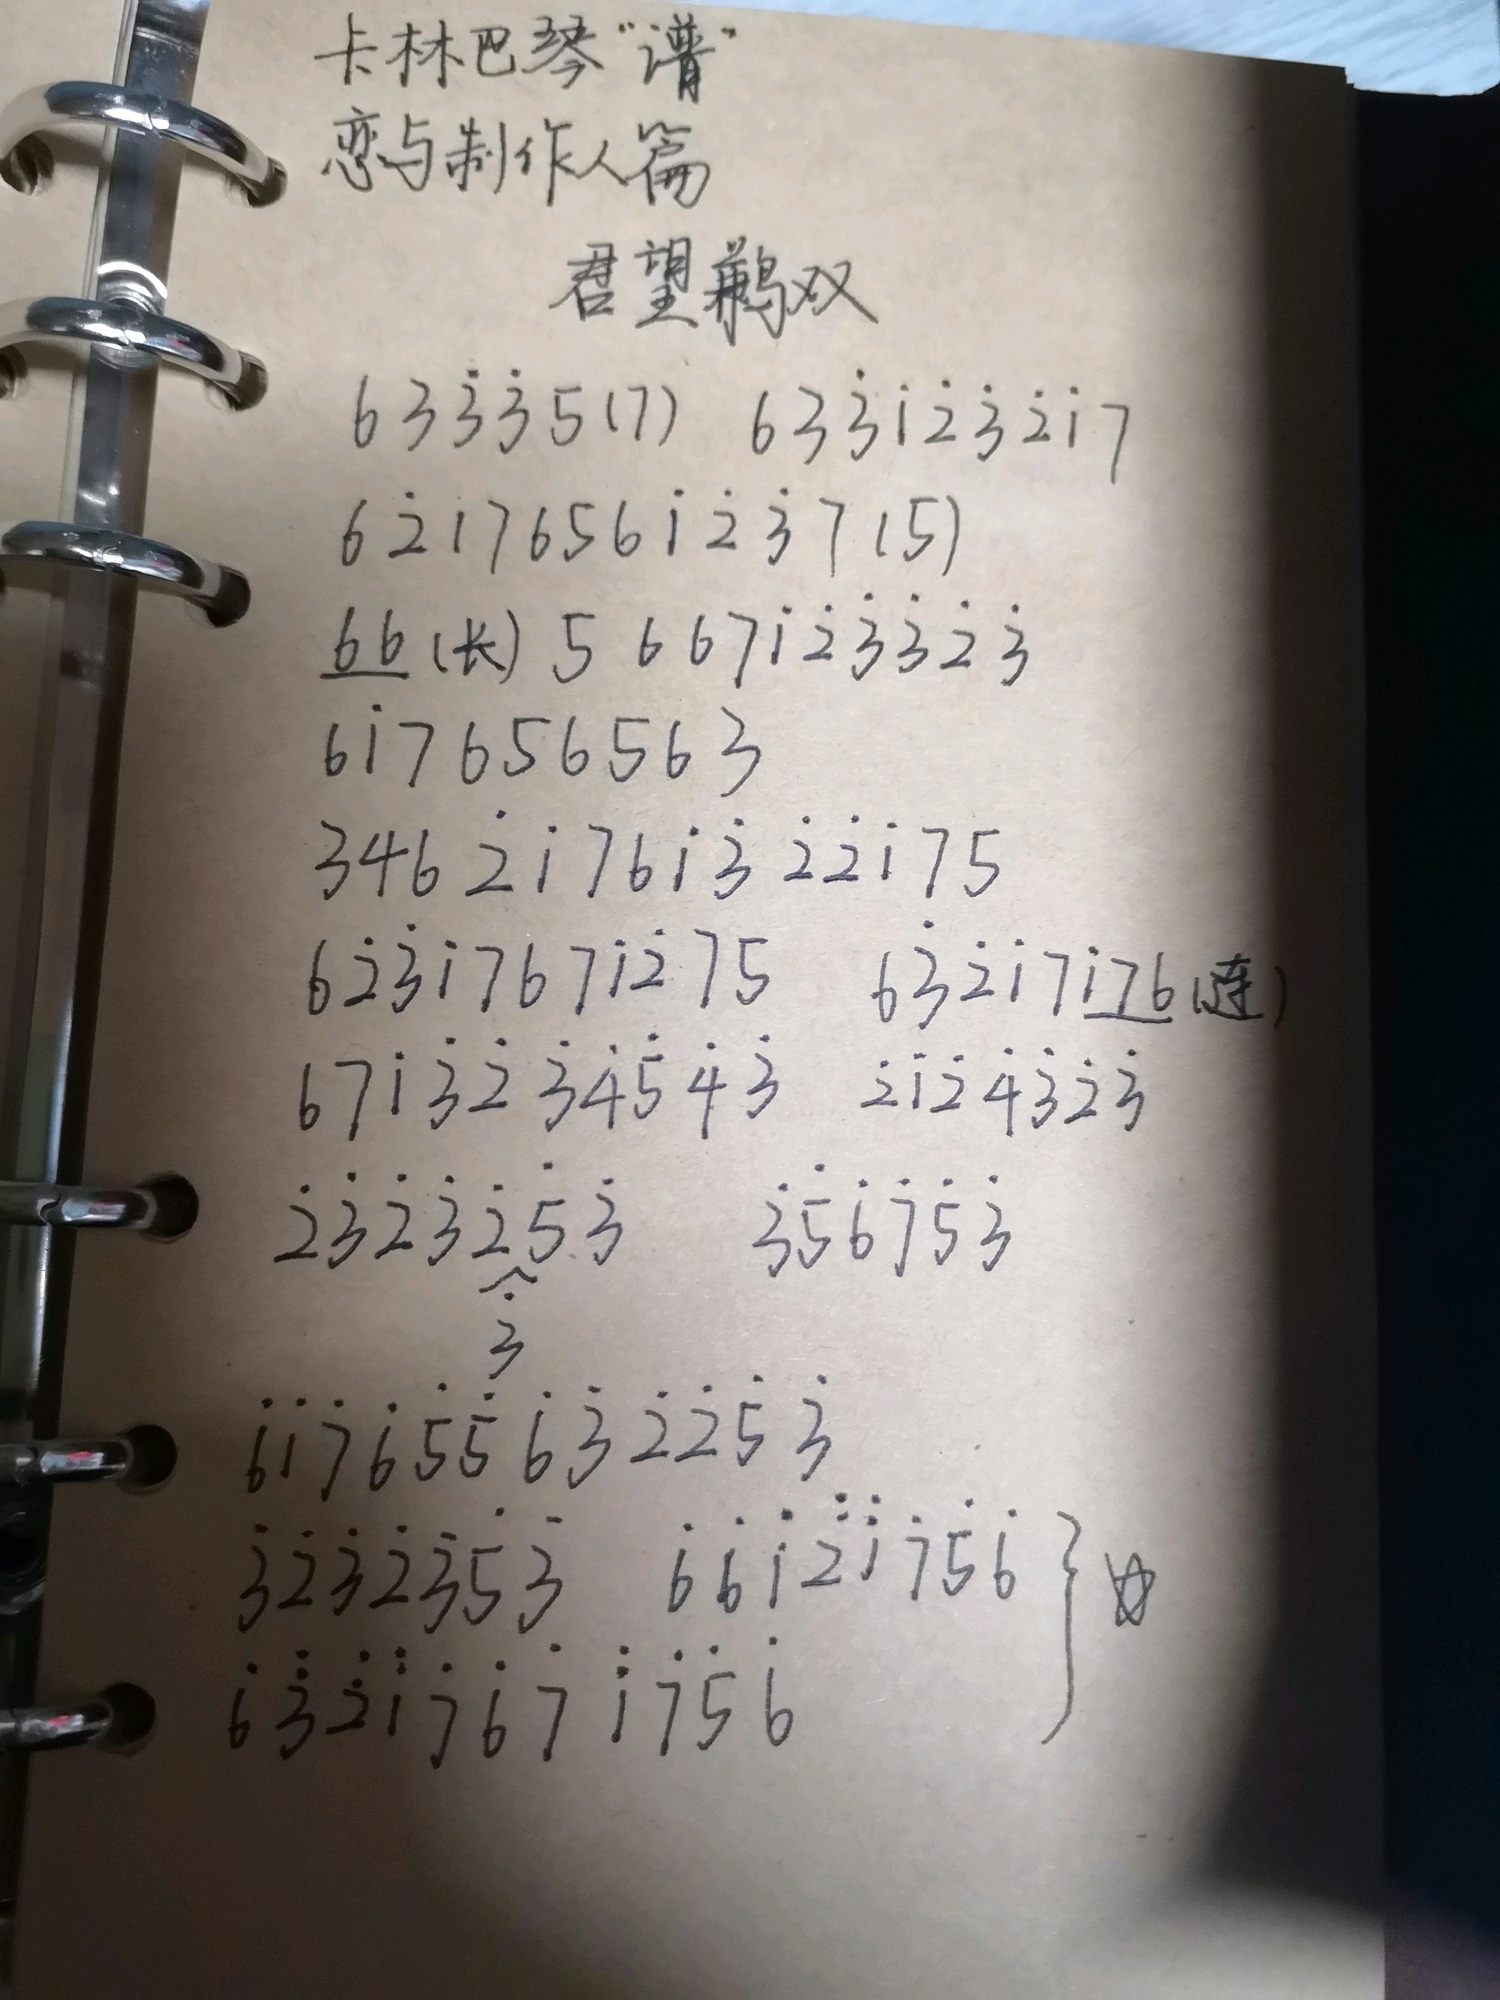 卡林巴琴“谱”
恋与制作人篇
君望鹣双
6 3 3̇ 3̇ 5 (7) 6 3 3̇ 1̇ 2̇ 3̇ 2̇ 1̇ 7
6 2̇ 1 7 6 5 6 1̇ 2̇ 3̇ 7 (5)
66 (长) 5 6 6 7 1̇ 2̇ 3̇ 3̇ 2̇ 3̇
6 1̇ 7 6 5 6 5 6 3
3 4 6 2̇ 1̇ 7 6 1̇ 3̇ 2̇ 2̇ 1̇ 7 5
6 2̇ 3̇ 1̇ 7 6 7 1̇ 2̇ 7 5 6 3̇ 2̇ 1̇ 7 1̇ 7 6 (连)
6 7 1̇ 3̇ 2̇ 3̇ 4̇ 5̇ 4̇ 3̇ 2̇ 1̇ 2̇ 4̇ 3̇ 2̇ 3̇
2̇ 3̇ 2̇ 3̇ 2̇ 5̇ 3̇ 3̇ 5̇ 6̇ 7̇ 5̇ 3̇
3̇
6̇ 1̇ 7̇ 6̇ 5̇ 5̇ 6̇ 3̇ 2̇ 2̇ 5̇ 3̇
3̇ 2̇ 3̇ 2̇ 3̇ 5̇ 3̇ 6̇ 6̇ 1̈ 2̈ 1̈ 7̇ 5̇ 6̇ } ☆
6̇ 3̈ 2̈ 1̈ 7̇ 6̇ 7̇ 1̈ 7̇ 5̇ 6̇